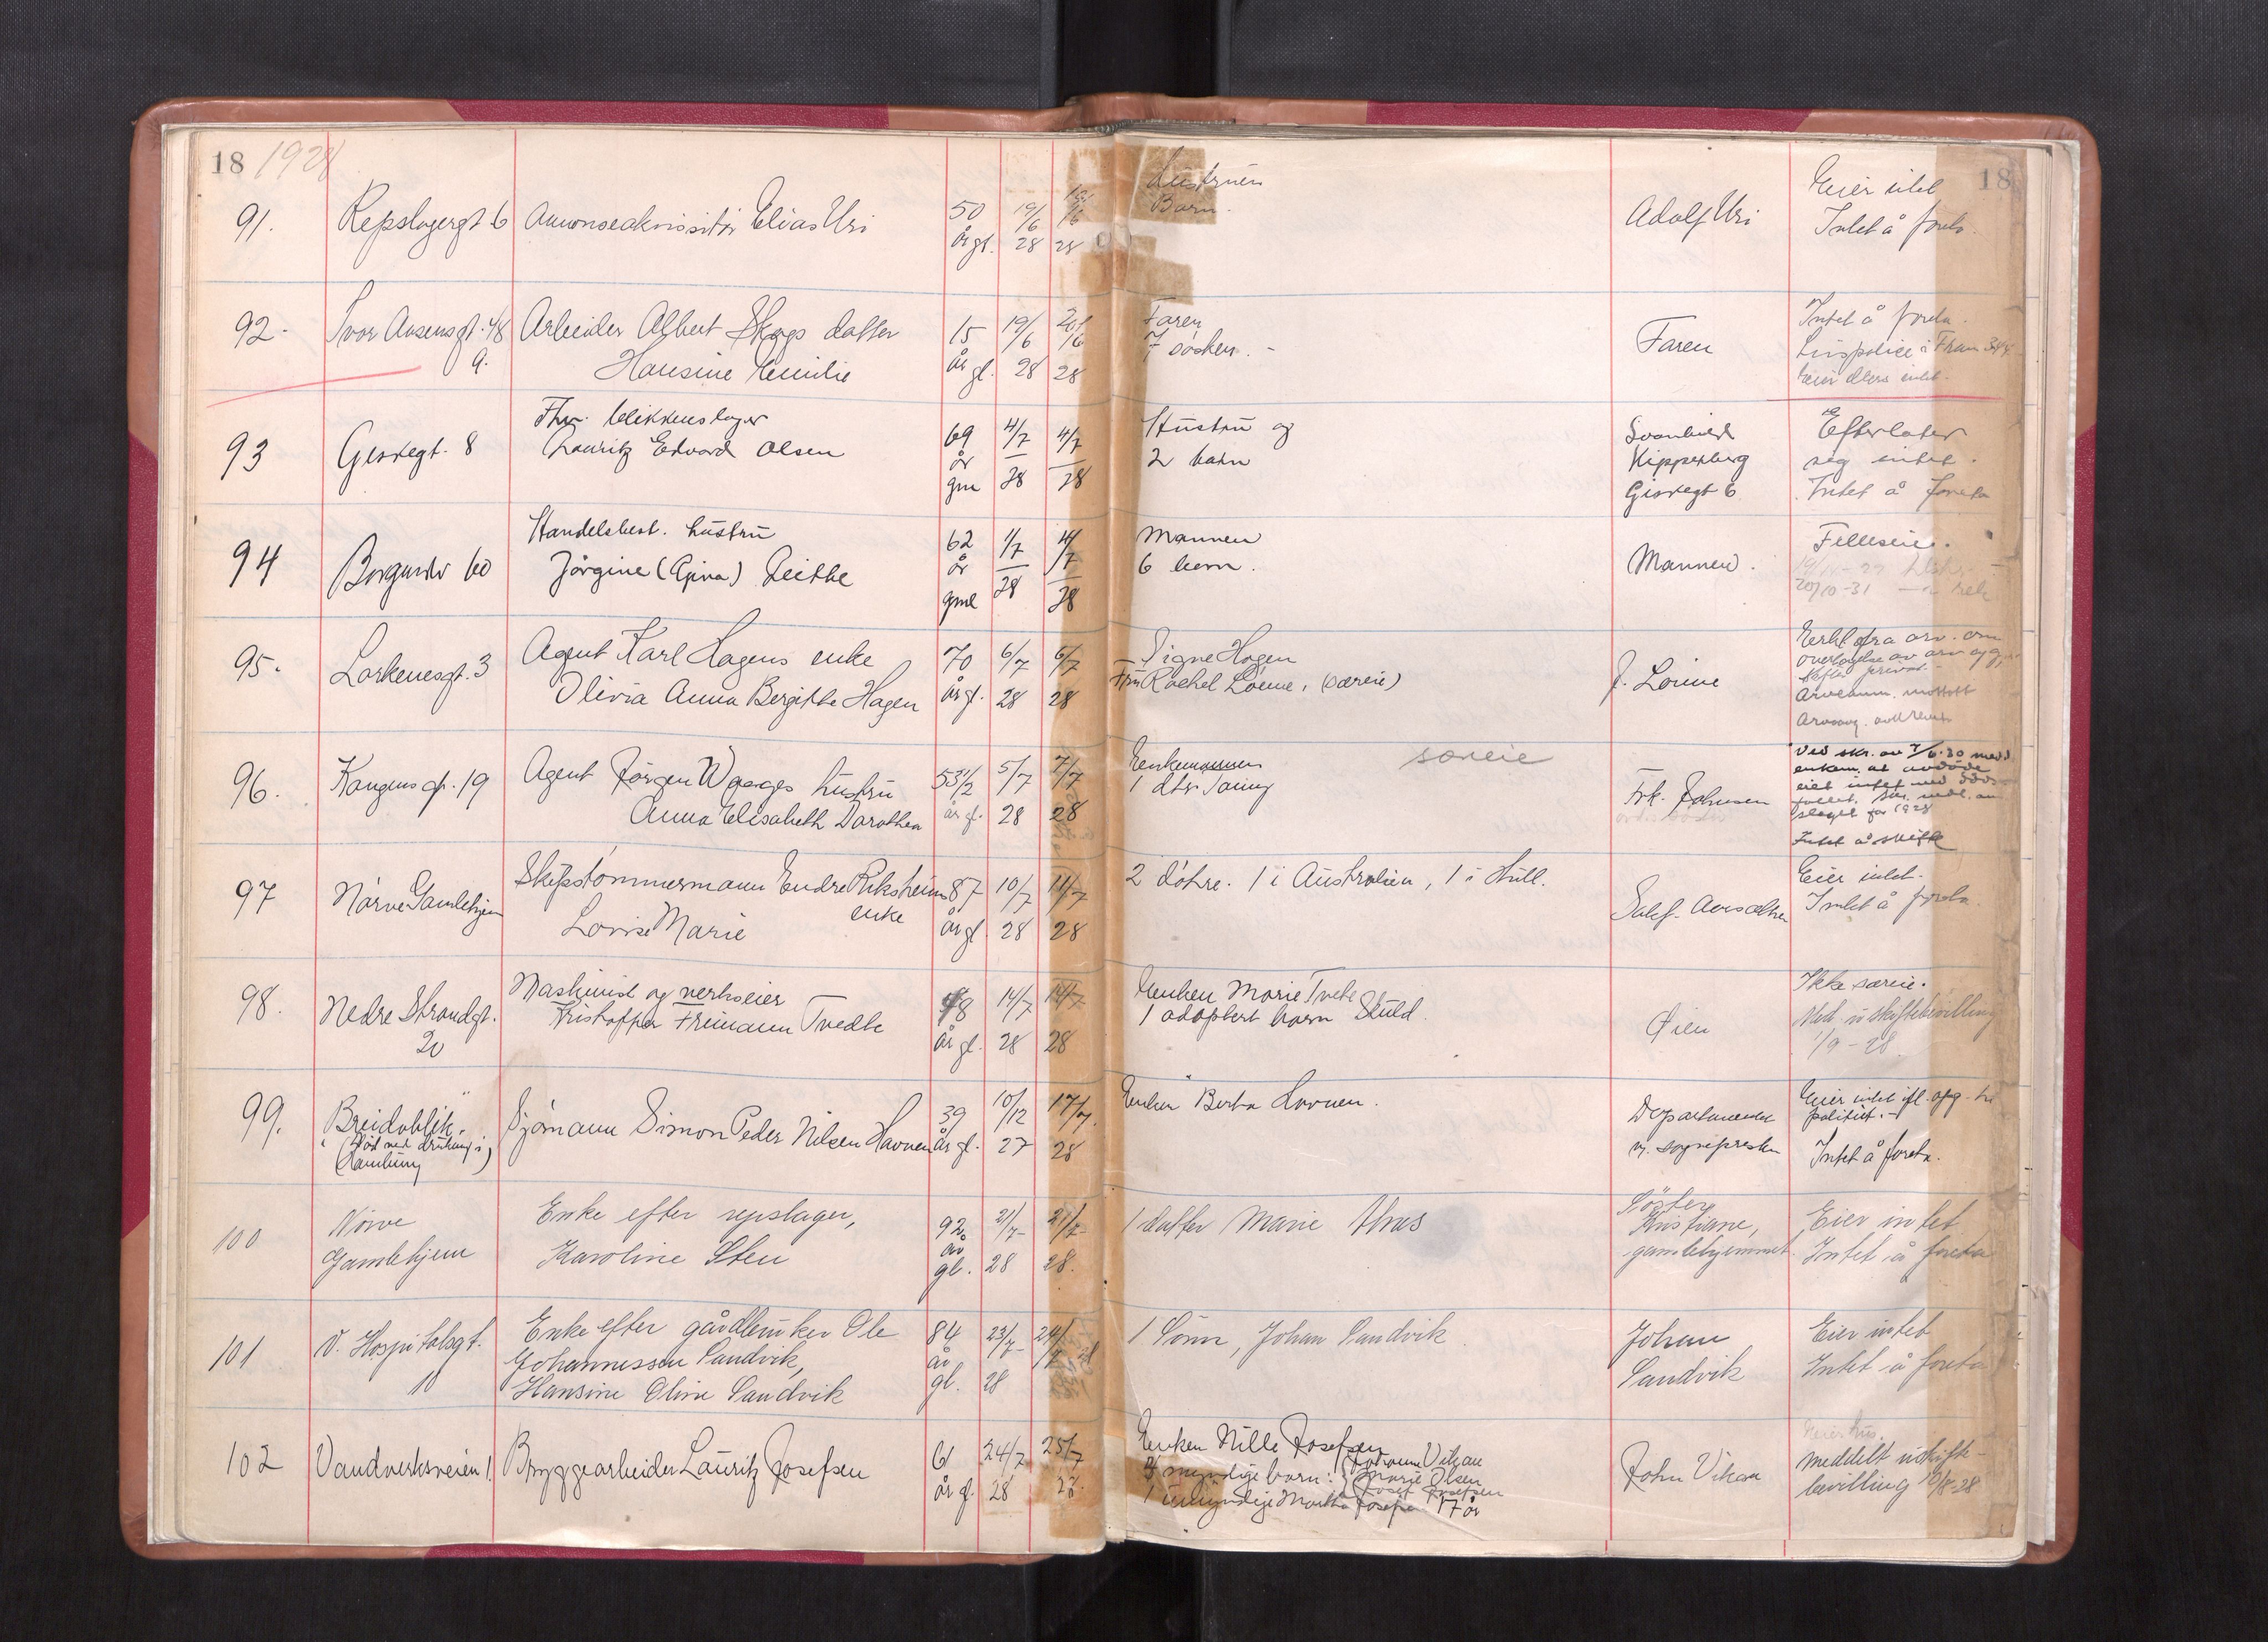 18 1928
91. Repslagergt 6 Annonseakvisitør Elias Uri 50 år gl. 19/6 28 19/6 28 Hustruen
Barn. Adolf Uri Eier intet
Intet å foreta.
92. Ivar Aasensgt. 48 Arbeider Albert Skogs datter 15 år gl. 19/6 28 20/6 28 Faren
9. Hansine Emilie 7 søsken. - Faren Intet å foreta.
Livspolice i Fram 344.
Eier ellers intet.
93 Giskegt. 8 Fhv. blikkenslager 69 år gm 4/7 28 4/7 28 Hustru og
Lauritz Edvard Olsen 2 barn Svanhild
Kipperberg
Giskegt 6 Efterlater
seg intet.
Intet å foreta
94 Borgundv 60 Handelsbest. hustru 62 år gml 1/7 28 4/7 28 Mannen
Jørgine (Gina) Leithe 6 barn. Mannen. Felleseie.
20/10-31
95. Lorkenesgt. 3 Agent Karl Hagens enke 70 år gl. 6/7 28 6/7 28 Signe Hagen
Olivia Anna Bergithe Hagen Fru Rachel Lorine, (særeie) J. Lorine Erkl. fra arv. om
overtagelse av arv og gj.
Skifter privat. -
Arveanm. mottatt
96. Kongens gt. 19 Agent Jørgen Waages hustru 53 1/2 år gl. 5/7 28 7/7 28 Enkemannen særeie
Anna Elisabeth Dorothea 1 dtr Fanny Frk. Johnsen Ved skr. av 7/6.30 medd.
enkem. at avdøde
eiet intet ved døds-
fallet.
Intet å skifte
97 Nørve Gamlehjem Skipstømmermann Endre Riksheims 87 år gl 10/7 28 11/7 28 2 døtre. 1 i Australien, 1 i Hull.
enke
Lovise Marie Eier intet.
Intet å foreta.
98. Nedre Strandgt. Maskinist og verkseier 48 år gl. 14/7 28 14/7 28 Enken Marie Tvete
20 Kristoffer Freimann Tvedte 1 adoptert barn Skuld. Øien Ikke særeie.
Med. uskiftebevilling
1/9 - 28
99. "Breidablik" Sjømann Simon Peder Nilsen Havnen 39 år gl. 10/12 27 17/7. 28 Enken Berta Havnen.
(Død ved drukning i
Hamburg) Departementet
v. sognepresten Eier intet ifl. opg. til
politiet. -
Intet å foreta.
100 Nørve Enke efter repslager, 92 år gl. 21/7 28 21/7 28. 1 datter Marie
Gamlehjem Karoline Sten Søster
Kristiane,
gamlehjemmet. Eier intet
Intet å foreta
101 V. Hospitalsgt. Enke efter gårdbruker Ole 84 år gl. 23/7 28 24/7 28 1 Sønn, Johan Sandvik
10 Johannessen Sandvik,
Hansine Oline Sandvik Johan
Sandvik Eier intet
Intet å foreta
102 Vandverksveien 1. Bryggearbeider Lauritz Josefsen 61 år gl. 24/7 28 25/7 28. Enken Nille Josefsen
4 myndige barn: Johanne Vikan
Marie Olsen
Josef Josefsen
1 umyndige Martha Josefsen 17 år John Vikan Eier hus.
meddelt uskifte-
bevilling 10/8-28
18